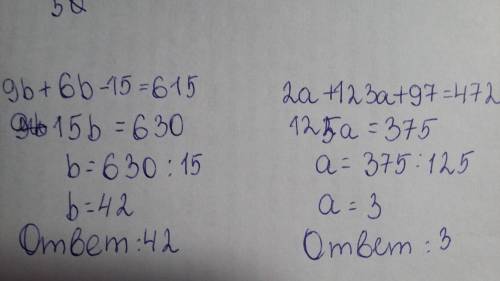 9b+6b-15=615
15b=630
b=630:15
b=42
Ответ:42
2a+123a+97=472
125a=375
a=375:125
a=3
Ответ:3